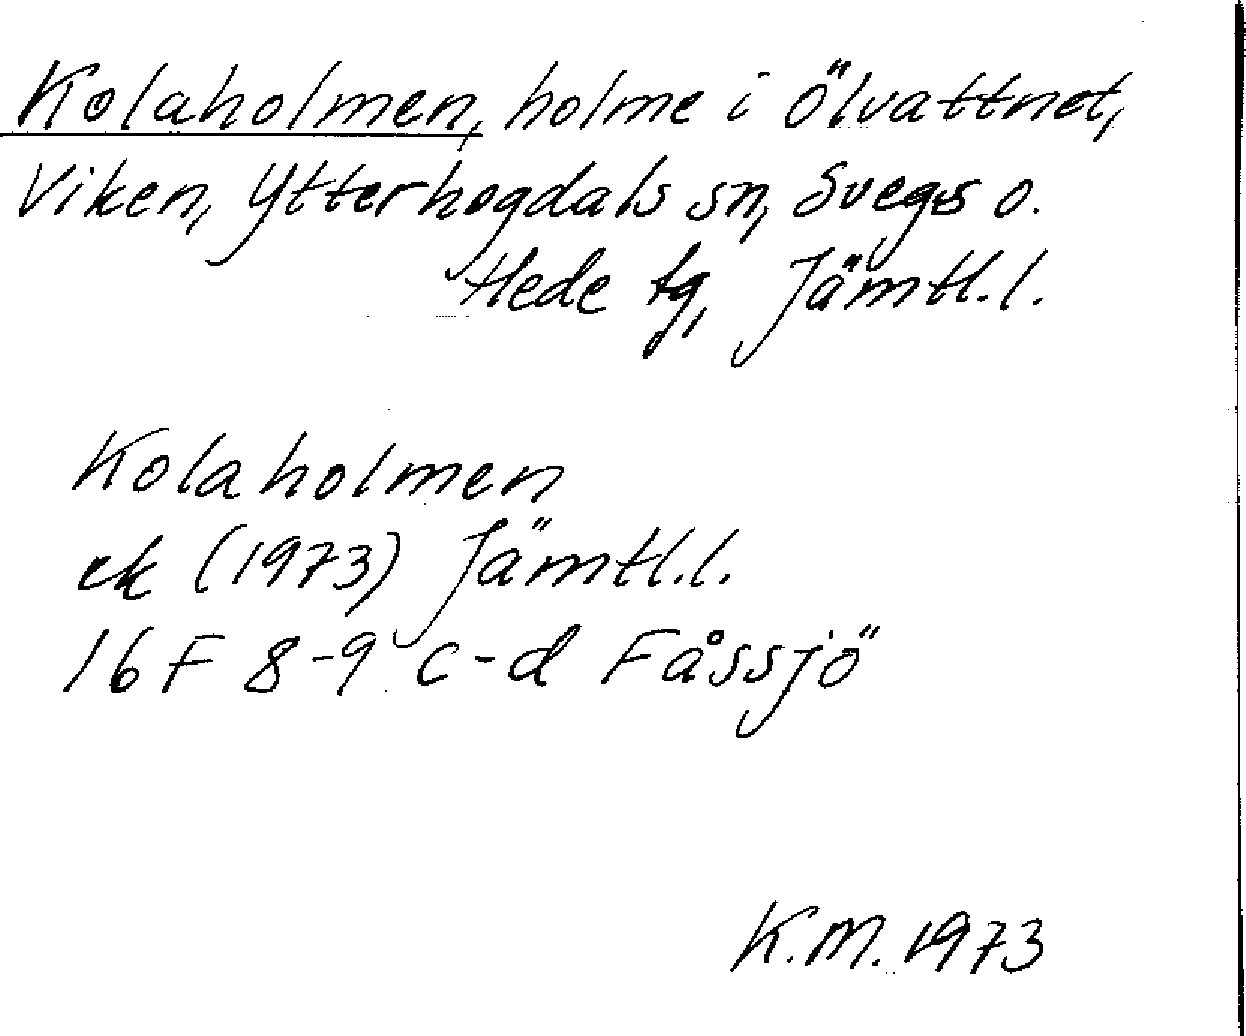 Kolaholmen, holme i Ölvattnet,
Viken, Ytterhogdals sn, Svegs o.
Hede tg, Jämtl.l.
Kolaholmen
ek (1973) Jämtl.l.
16 F 8-9 c-d Fåssjö
K.M. 1973